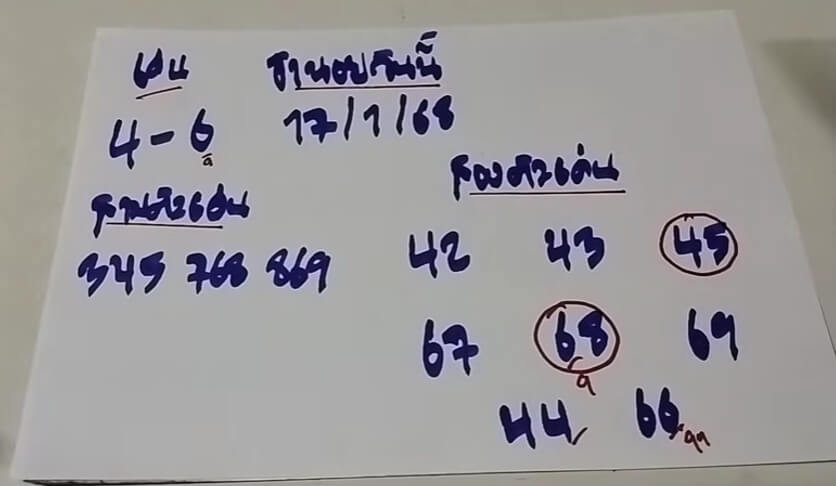 เด่น
ฮานอยวันนี้
4-6
17/1/68
สามตัวเด่น
สองตัวเด่น
345 768 869
42 43 45
67 68 69
44 66